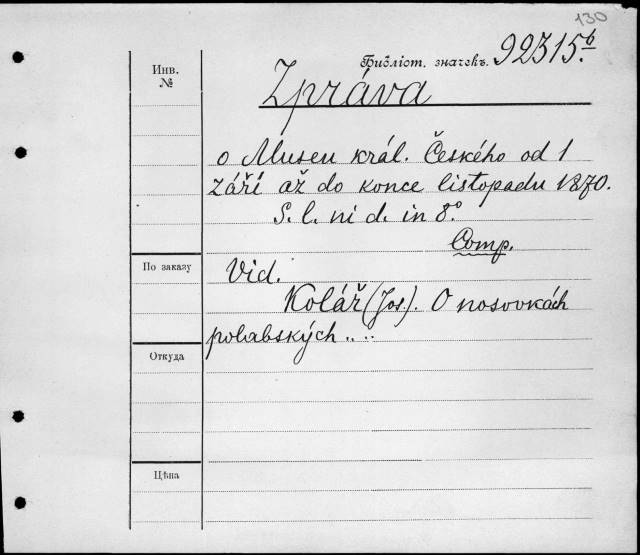 130
Библіот. значекъ. 92315.b
Инв.
№
Zpráva
o Museu král. Českého od 1
září až do konce listopadu 1870.
S. l. ni d. in 8.º
Comp.
По заказу
Vid.
Kolář (Jos.). O nosovkách
polabských ....
Откуда
Цѣна